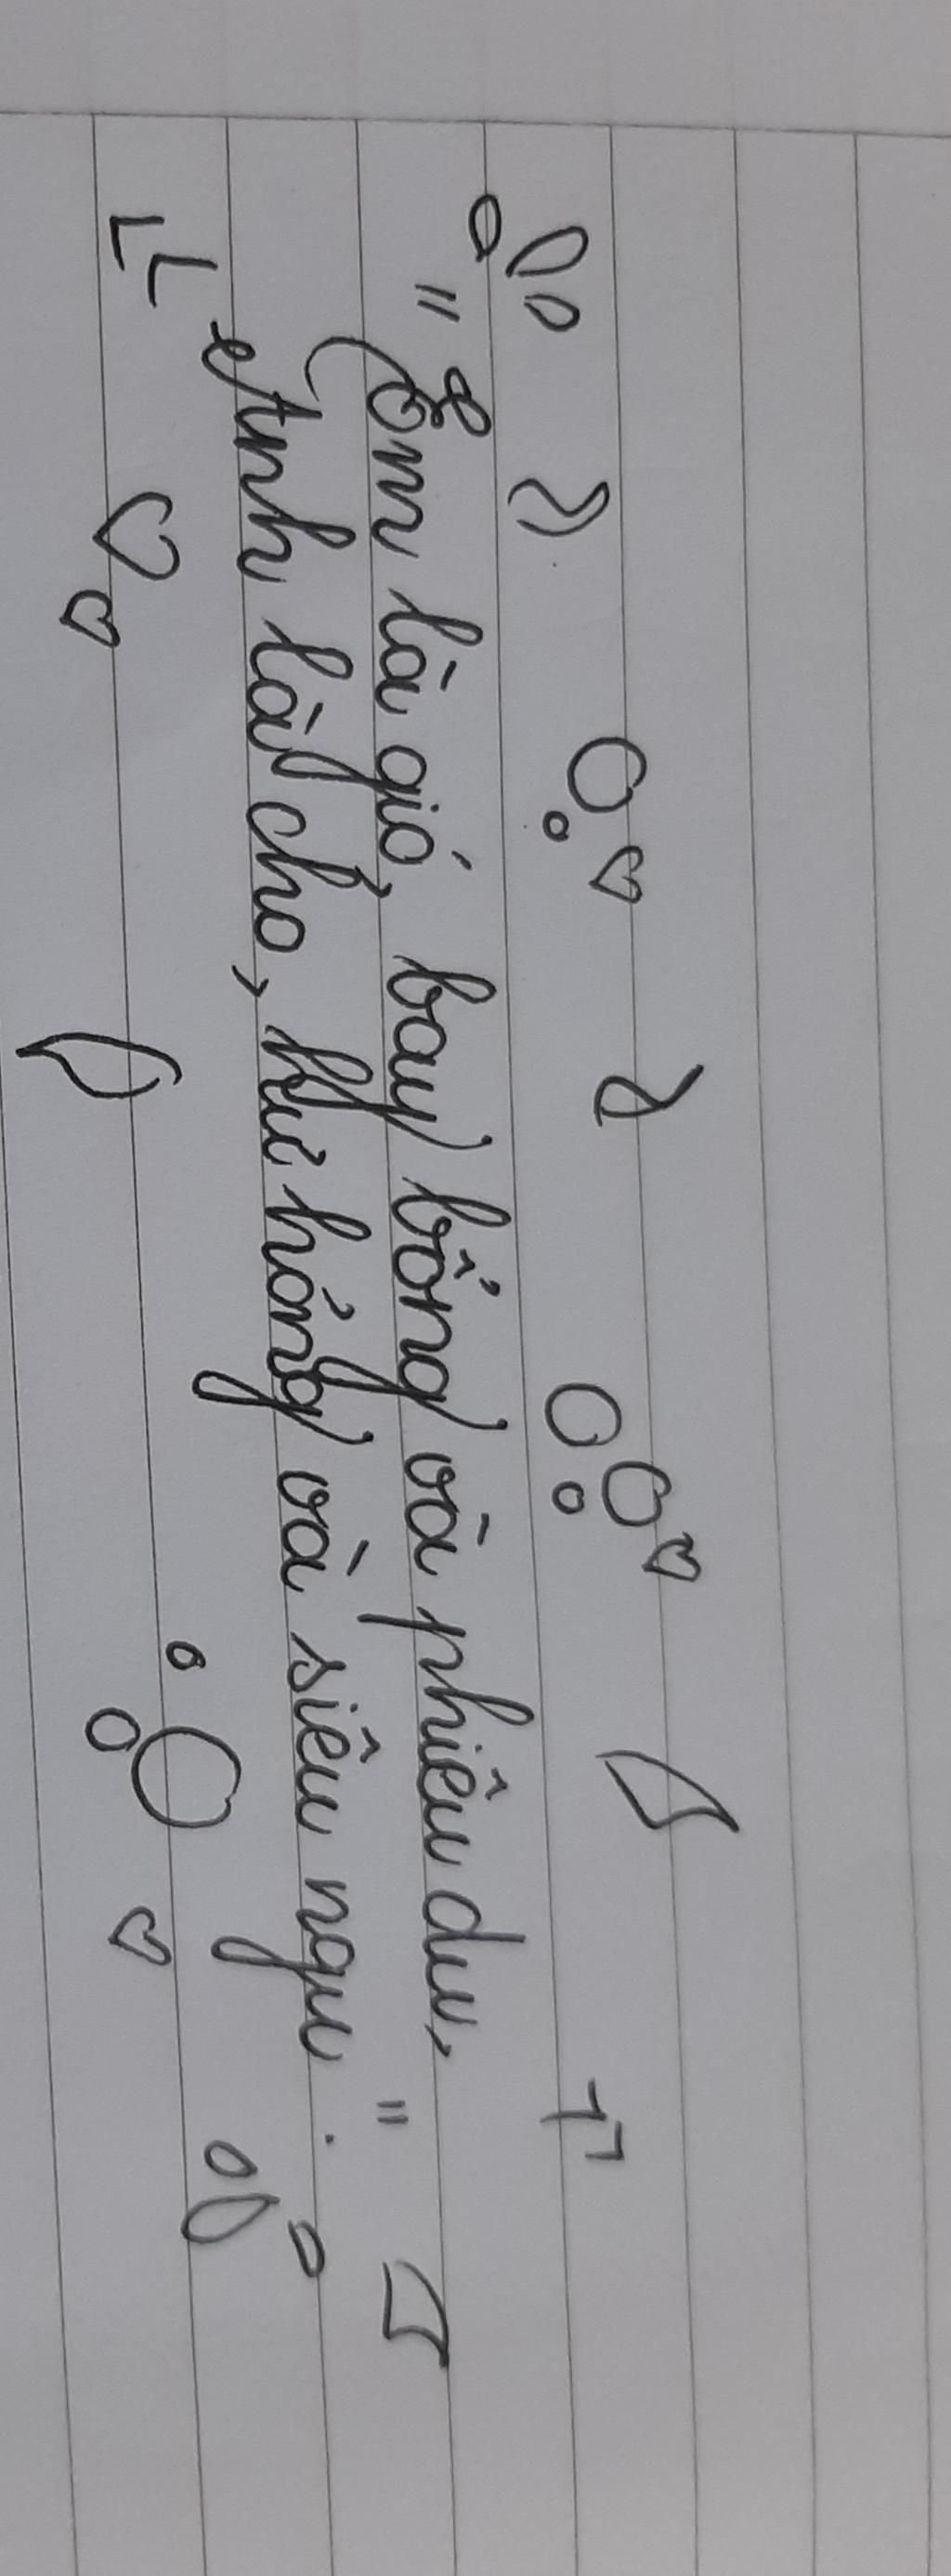 "Em là gió, bay bổng và phiêu du,
Anh là chó, hư hỏng và siêu ngu."